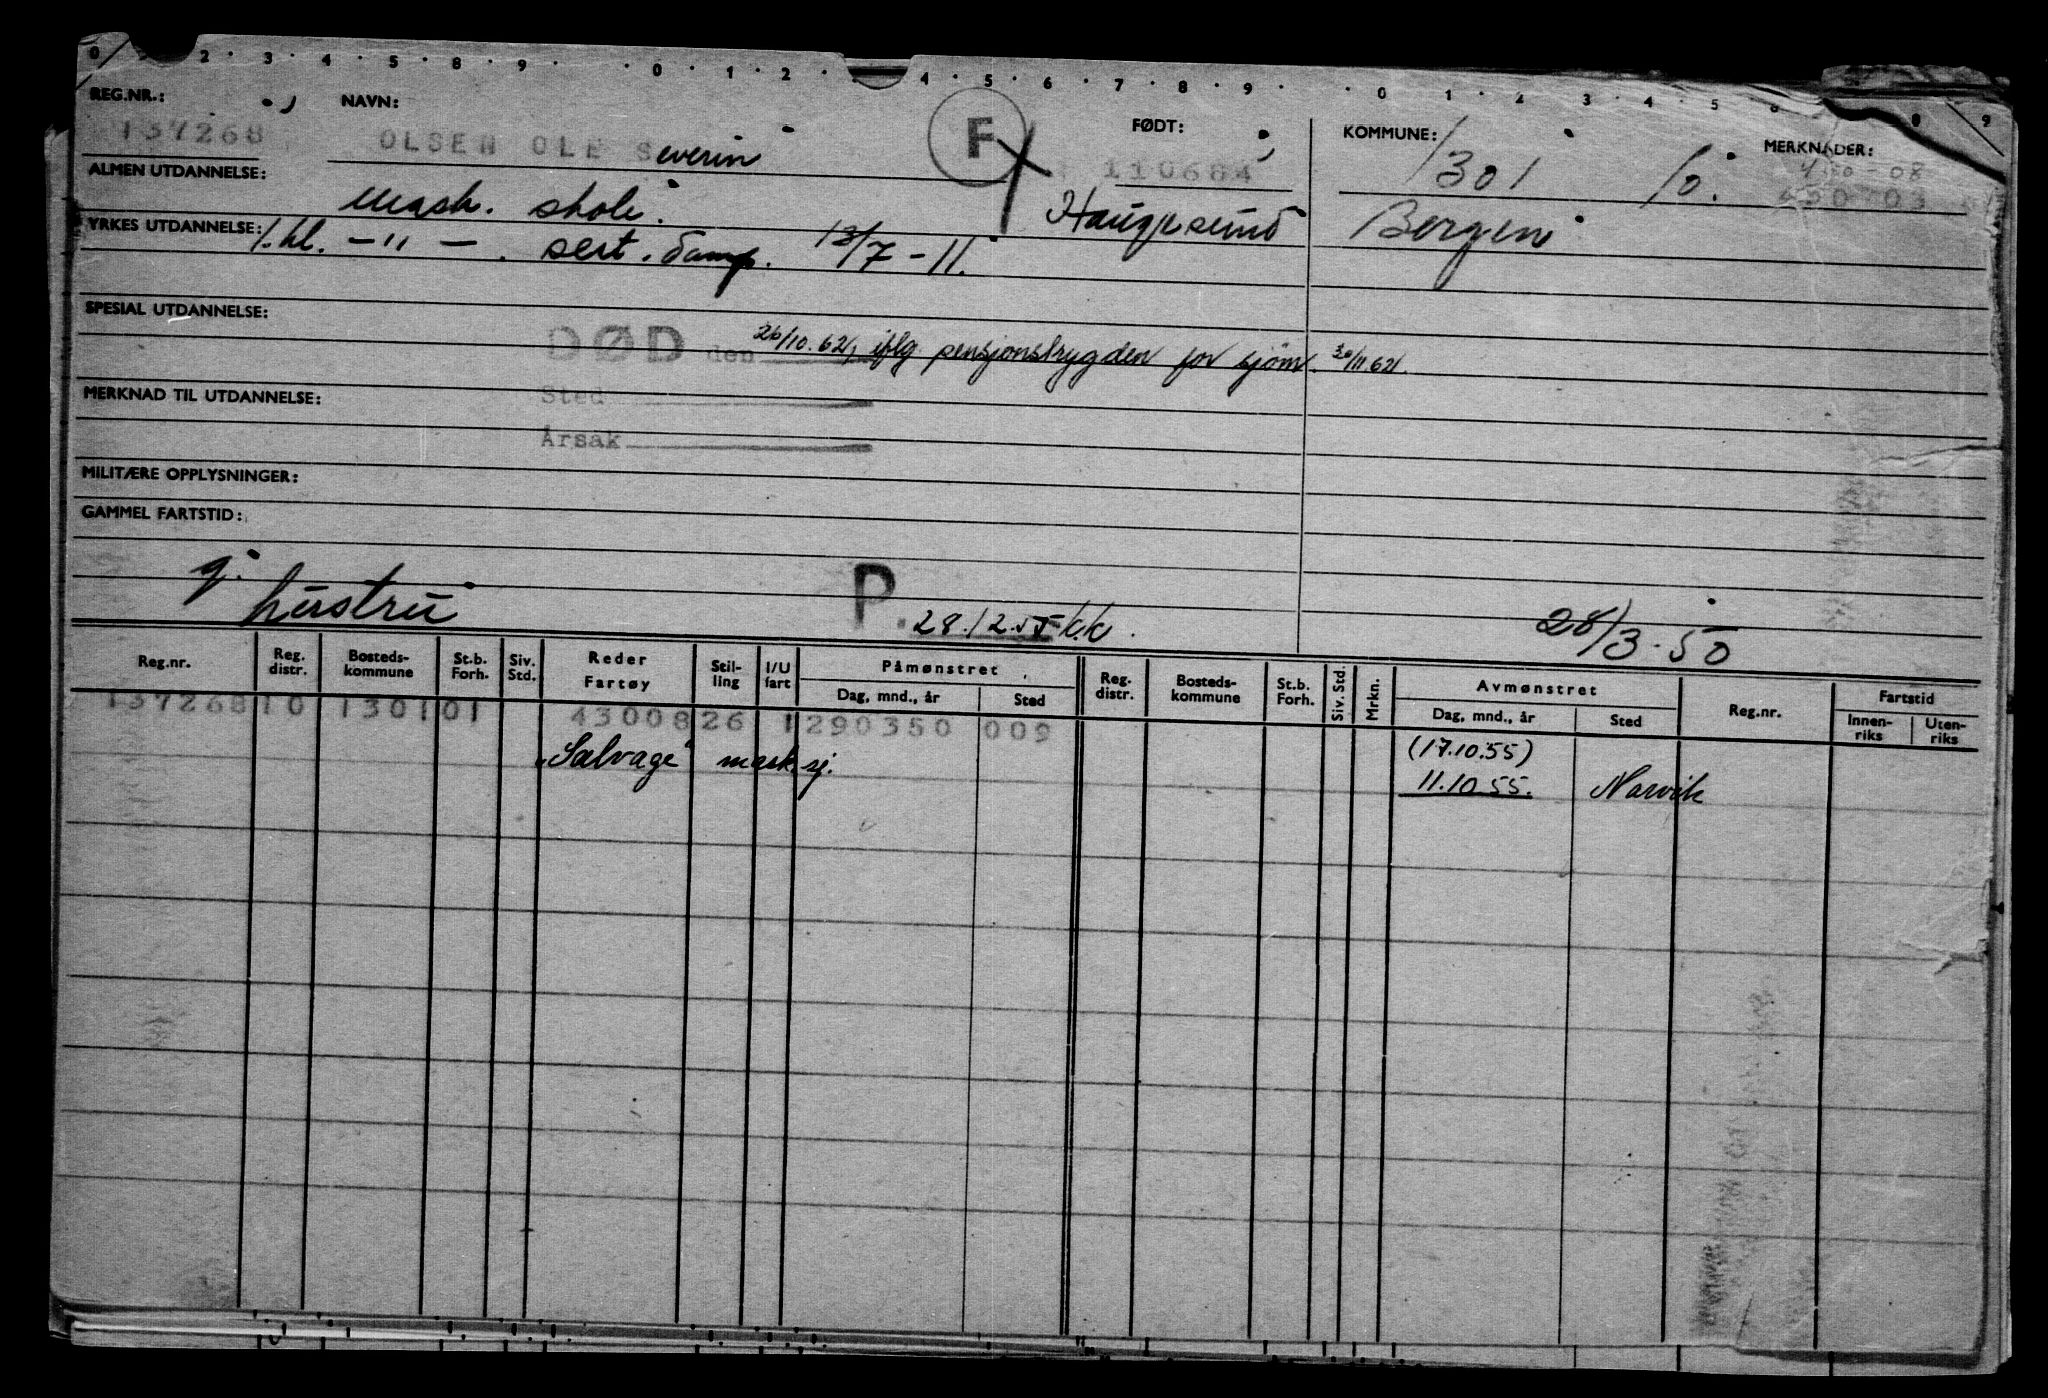 0 2 3 4 5 8 9 0 1 2 4 5 6 7 8 9 0 1 2 3 4 5 8 9
REG.NR.: NAVN: FØDT: KOMMUNE: MERKNADER:
137268 OLSEN OLE Severin F 110684 1301
ALMEN UTDANNELSE: mask. skole. Haugesund Bergen
YRKES UTDANNELSE: 1. kl. -"- sert. damp. 13/7-11.
SPESIAL UTDANNELSE:
DØD den 26/10.62, iflg pensjonstrygden for sjøm. 30/11.62.
Sted
MERKNAD TIL UTDANNELSE:
Årsak
MILITÆRE OPPLYSNINGER:
GAMMEL FARTSTID:
g. hustru P. 28.12.55 k.k. 28/3-50
Reg.nr. Reg. distr. Bosteds-kommune St.b. Forh. Siv. Std. Reder Fartøy Stil-ling I/U fart Påmønstret Dag, mnd., år Sted Reg. distr. Bosteds-kommune St.b. Forh. Siv. Std. Mrkn. Avmønstret Dag, mnd., år Sted Reg.nr. Fartstid Innen-riks Uten-riks
137268 10 1301 01 43008 26 1 290350 009
"Salvage" mask.sj. (17.10.55)
11.10 55. Narvik